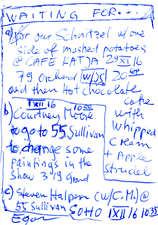 WAITING FOR...
a) for our Schnitzel w/ one
side of mashed potatoes
@ CAFÉ KATJA 29 XI 16
79 Orchard W/DS 20
and then Hot chocolate
cake
with
Whipped
Cream
+ Apple
Strudel
1 XII 16 10
b) Courtney Moore
to go to 55 Sullivan
to change some
paintings in the
show 319 Grand
c) Steven Halpern (w/C.M.) @
55 Sullivan SOHO 1 XII 16 10